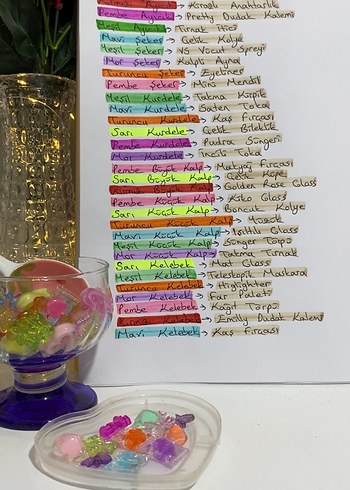 Kirazlı Anahtarlık
Pembe Ayıcık → Pretty Dudak Kalemi
Yeşil Ayıcık → Tırnak
Mavi Şeker → Çelik Kolye
Yeşil Şeker → NS Vücut Spreyi
Mor Şeker → Kalpli Ayna
Turuncu Şeker → Eyeliner
Pembe Şeker → Mini Mendil
Yeşil Kurdele → Takma Kirpik
Mavi Kurdele → Saten Toka
Turuncu Kurdele → Kaş Fırçası
Sarı Kurdele → Çelik Bileklik
Pembe Kurdele → Pudra Süngeri
Mor Kurdele → İncili Toka
Pembe Büyük Kalp → Makyaj Fırçası
Sarı Büyük Kalp → Çelik Küpe
Kırmızı Büyük Kalp → Golden Rose Gloss
Pembe Küçük Kalp → Kiko Gloss
Sarı Küçük Kalp → Boncuk Kolye
Turuncu Küçük Kalp →
Mavi Küçük Kalp → Işıltılı Gloss
Yeşil Küçük Kalp → Sünger Topu
Mor Küçük Kalp → Takma Tırnak
Sarı Kelebek → Gloss
Yeşil Kelebek → Teleskopik Maskara
Turuncu Kelebek → Highlighter
Mor Kelebek → Far Paleti
Pembe Kelebek → Kağıt Törpü
Kırmızı Kelebek → Emily Dudak Kalemi
Mavi Kelebek → Kaş Fırçası